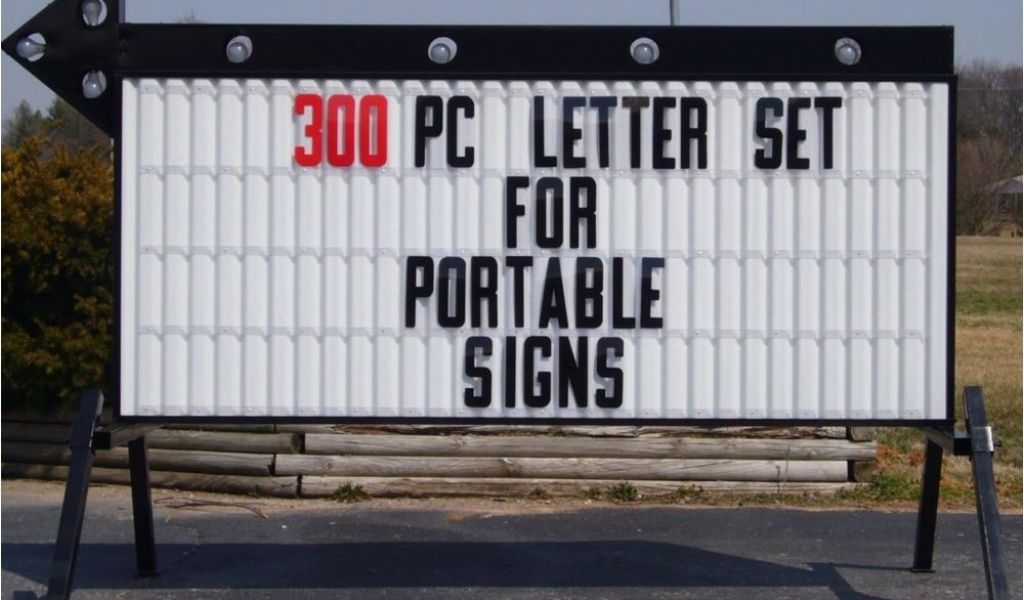 300 PC LETTER SET
FOR
PORTABLE
SIGNS